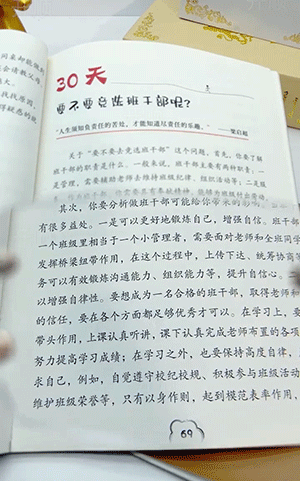 问来都能做到
会请教父母
大。
找找原因，
得疑惑的地
30天
要不要竞选班干部呢？
“人生须知负责任的苦处，才能知道尽责任的乐趣。”——梁启超
关于“要不要去竞选班干部”这个问题，首先，你要了解
班干部的职责是什么。一般来说，班干部主要有两种职责：一
是管理，需要辅助老师去维持班级纪律、组织活动等；二是服
其次，你要分析做班干部可能给你带来的影响。
有很多益处。一是可以更好地锻炼自己，增强自信。班干部
一个班级里相当于一个小管理者，需要面对老师和全班同学
发挥桥梁纽带作用，在这个过程中，上传下达、统筹协商等
务可以有效锻炼沟通能力、组织能力等，提升自信心。二
以增强自律性。要想成为一名合格的班干部，取得老师和
的信任，要在各个方面都足够优秀才可以。在学习上，要
带头作用，上课认真听讲，课下认真完成老师布置的各项
努力提高学习成绩；在学习之外，也要保持高度自律，
求自己，例如，自觉遵守校纪校规、积极参与班级活动
维护班级荣誉等，只有以身作则，起到模范表率作用，
69